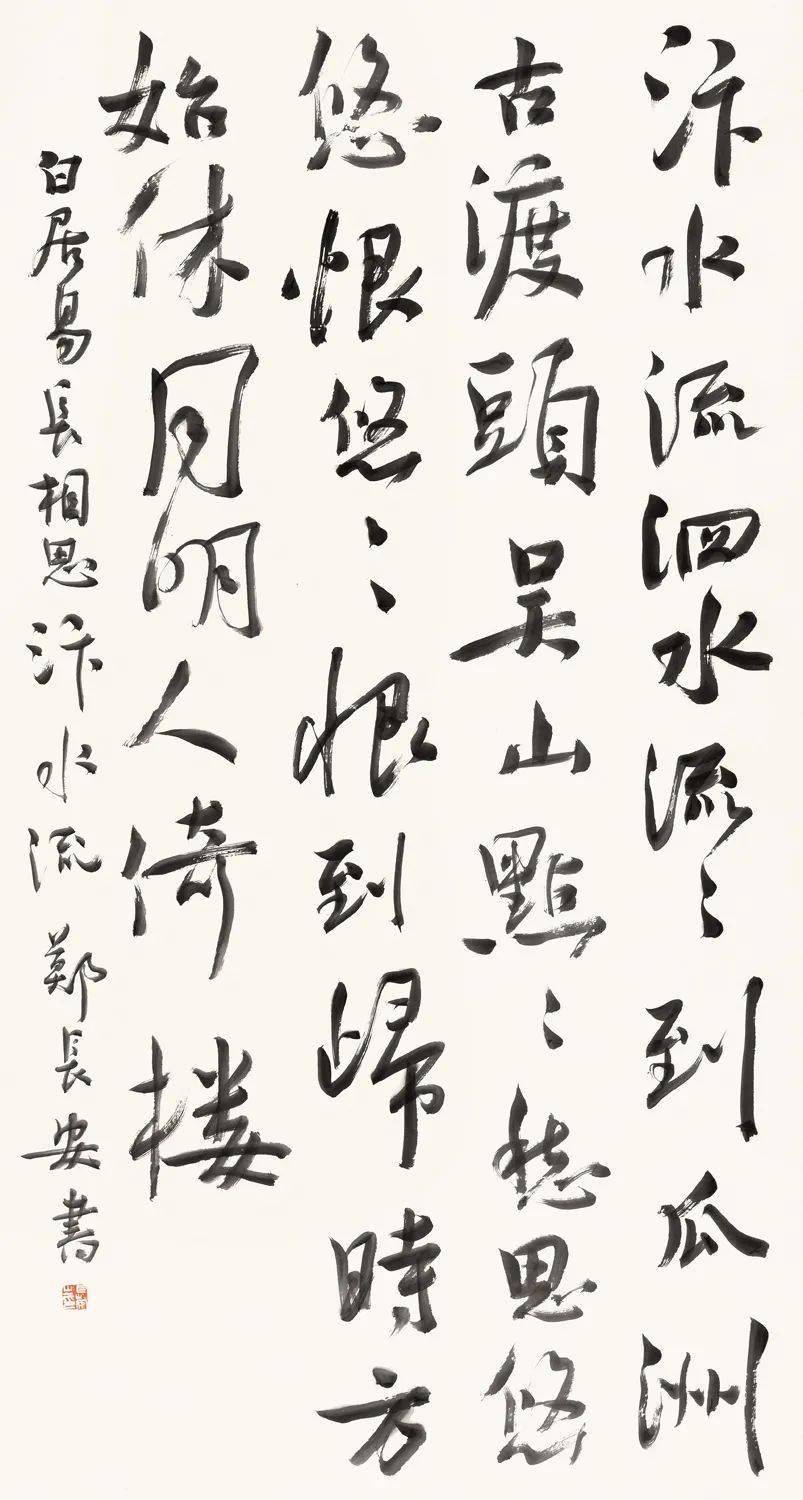 汴水流泗水流〻到瓜洲
古渡頭吴山點〻愁思悠
悠恨悠〻恨到歸時方
始休月明人倚楼
白居易長相思汴水流鄭長安書